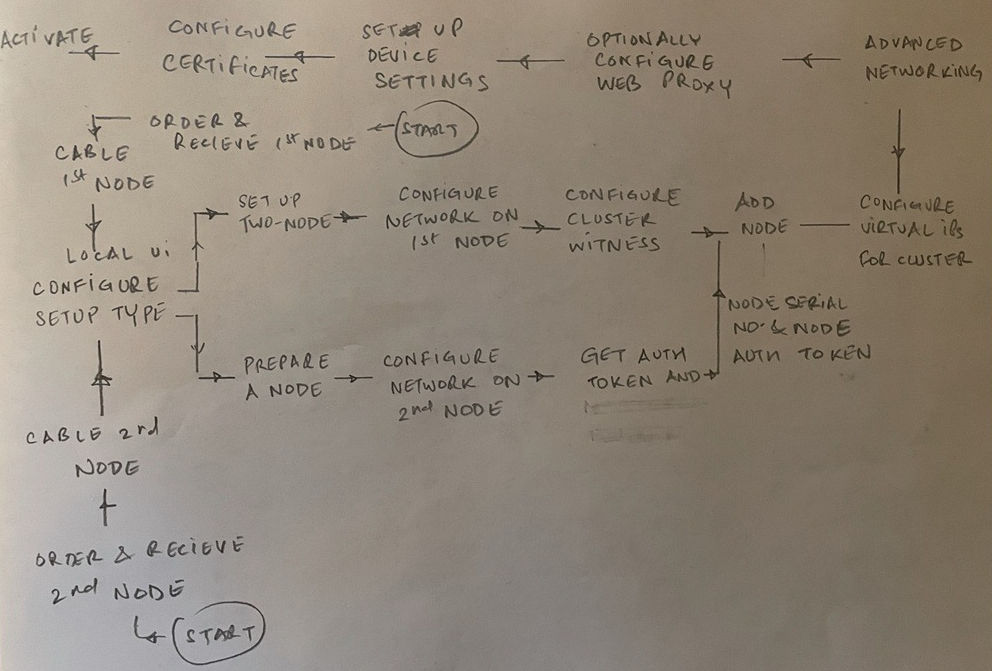 ACTIVATE
CONFIGURE
CERTIFICATES
SET UP
DEVICE
SETTINGS
OPTIONALLY
CONFIGURE
WEB PROXY
ADVANCED
NETWORKING
ORDER &
RECIEVE 1st NODE
START
CABLE
1st NODE
LOCAL Ui
CONFIGURE
SETUP TYPE
SET UP
TWO-NODE
CONFIGURE
NETWORK ON
1st NODE
CONFIGURE
CLUSTER
WITNESS
ADD
NODE
CONFIGURE
VIRTUAL iPs
FOR CLUSTER
PREPARE
A NODE
CONFIGURE
NETWORK ON
2nd NODE
GET AUTH
TOKEN AND
NODE SERIAL
NO. & NODE
AUTH TOKEN
CABLE 2nd
NODE
ORDER & RECIEVE
2nd NODE
START